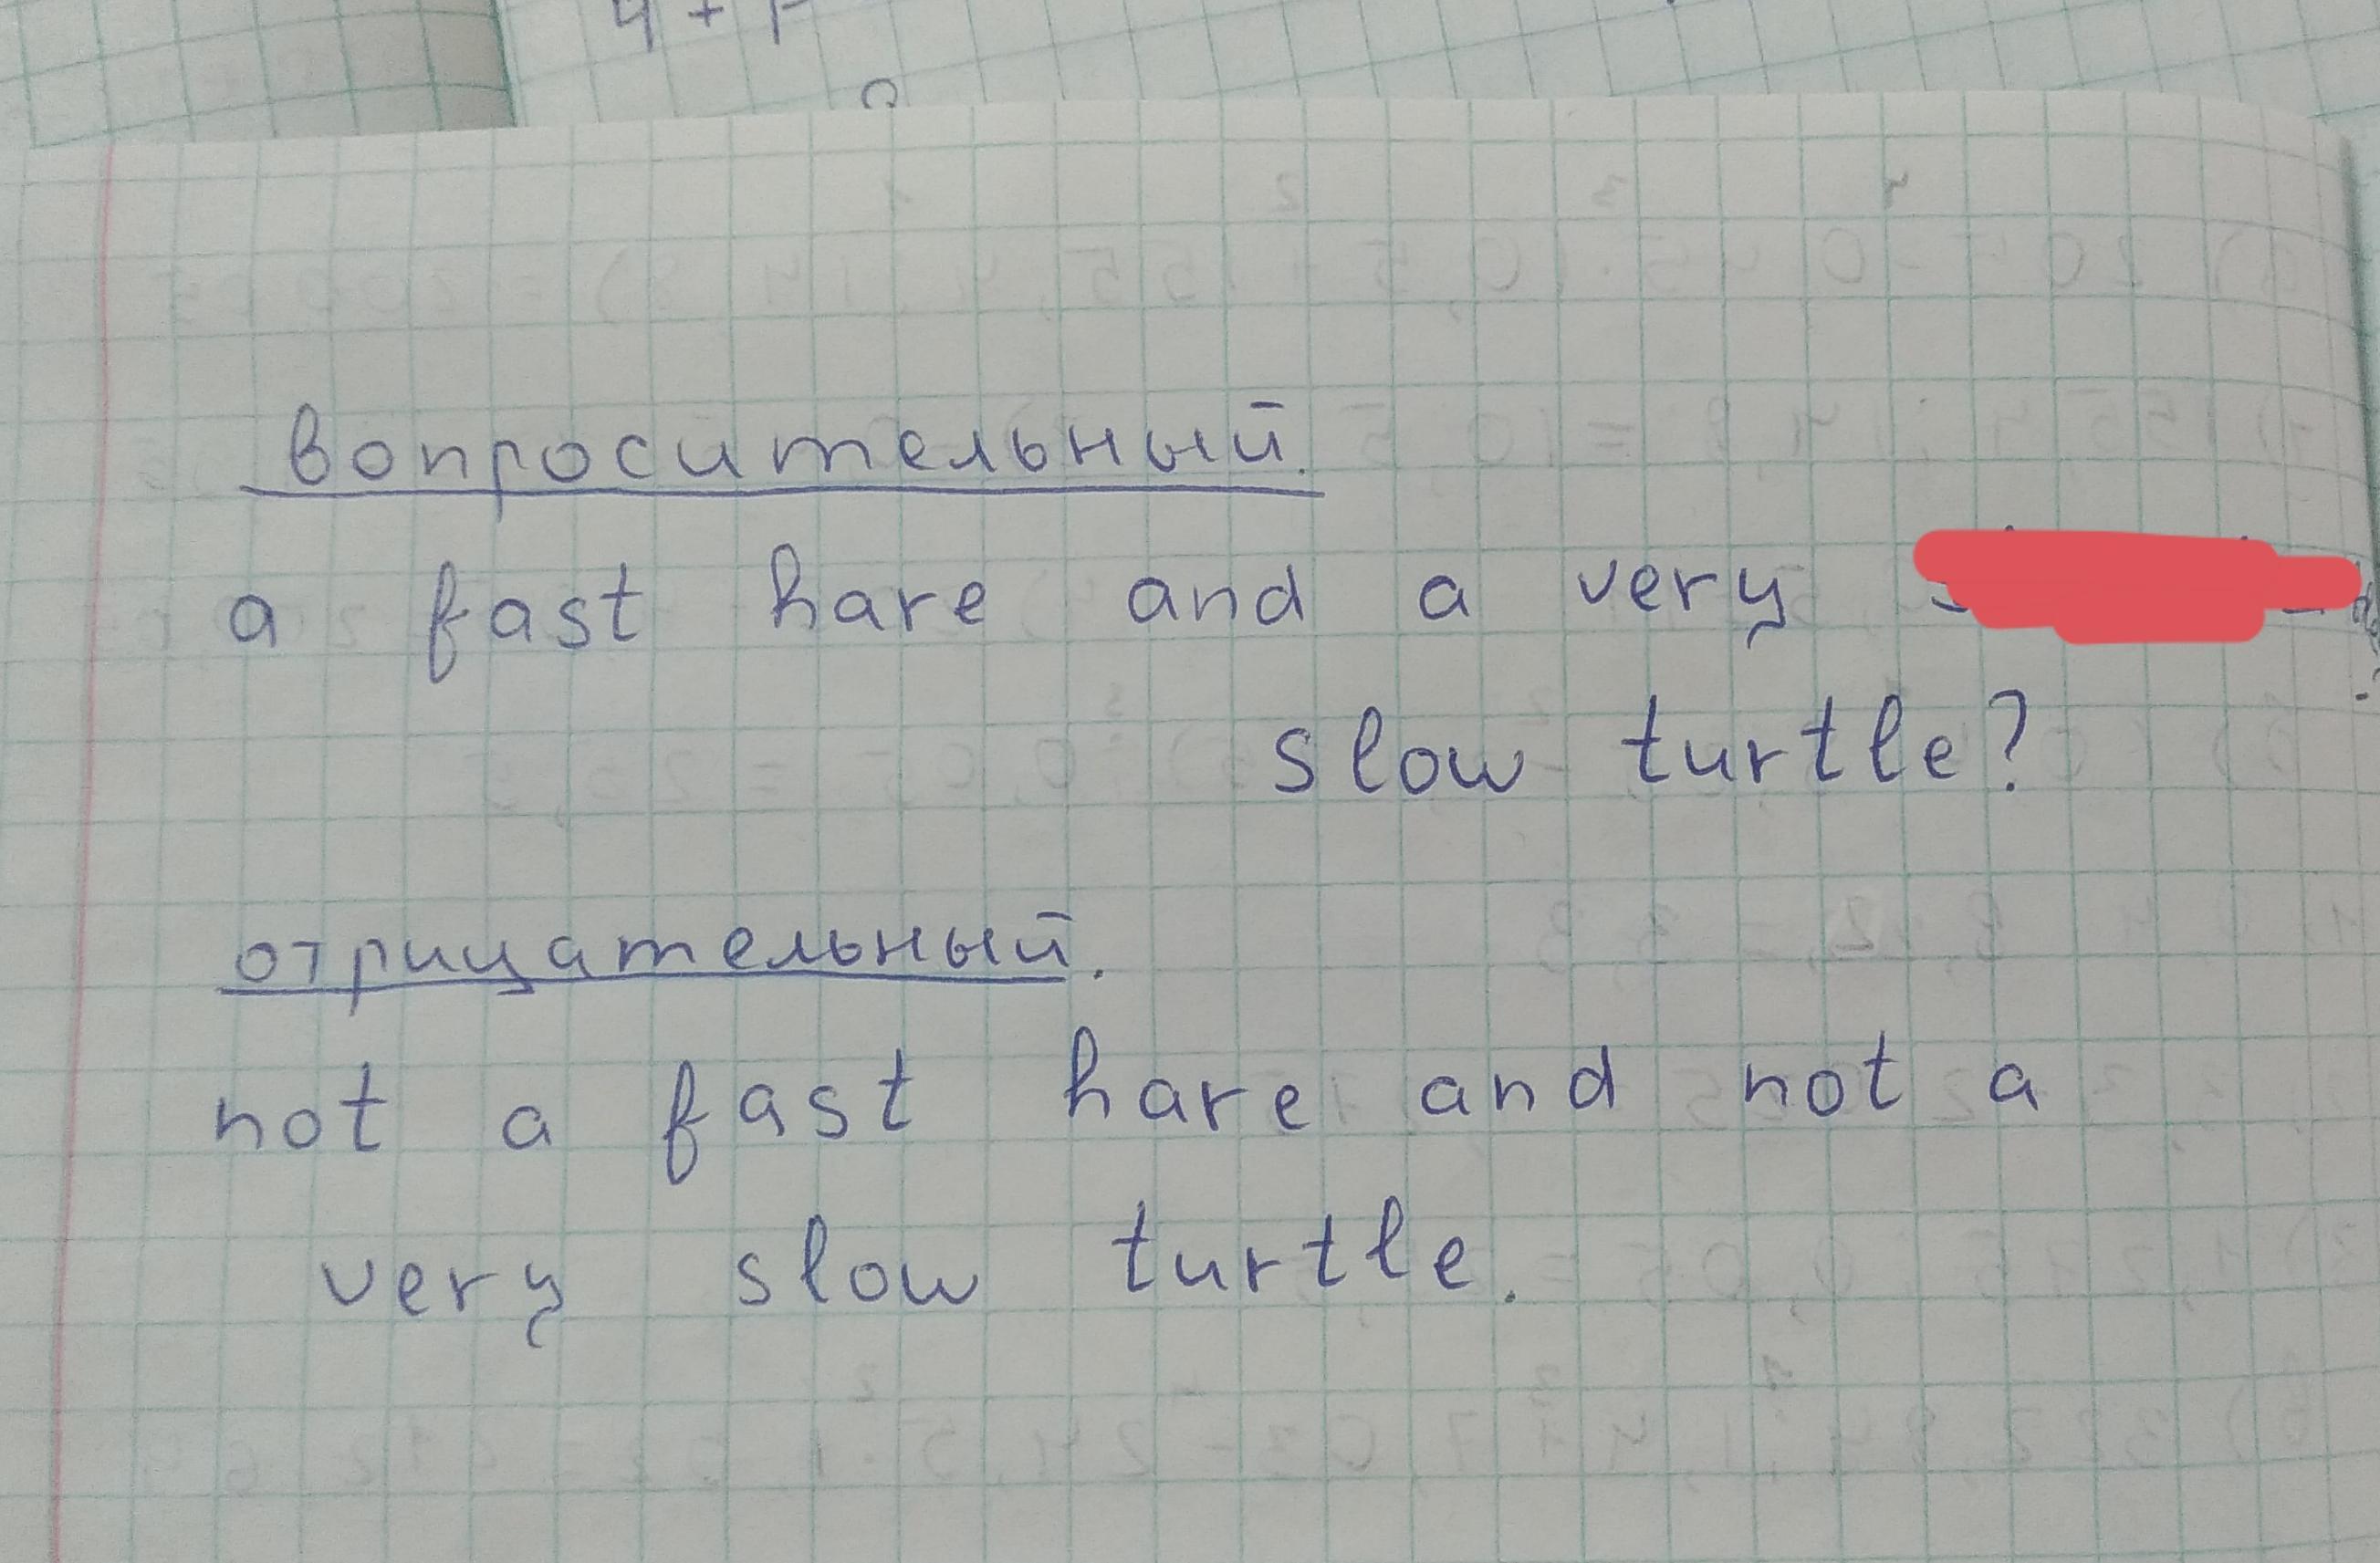 4 +
вопросительный.
a fast hare and a very
slow turtle?
отрицательный.
not a fast hare and not a
very slow turtle.